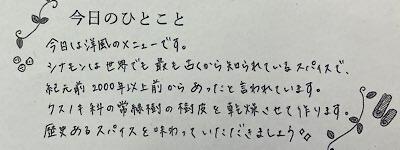 今日のひとこと
今日は洋風のメニューです。
シナモンは世界でも最も古くから知られているスパイスで、
紀元前2000年以上前からあったと言われています。
クスノキ科の常緑樹の樹皮を乾燥させて作ります。
歴史あるスパイスを味わっていただきましょう。